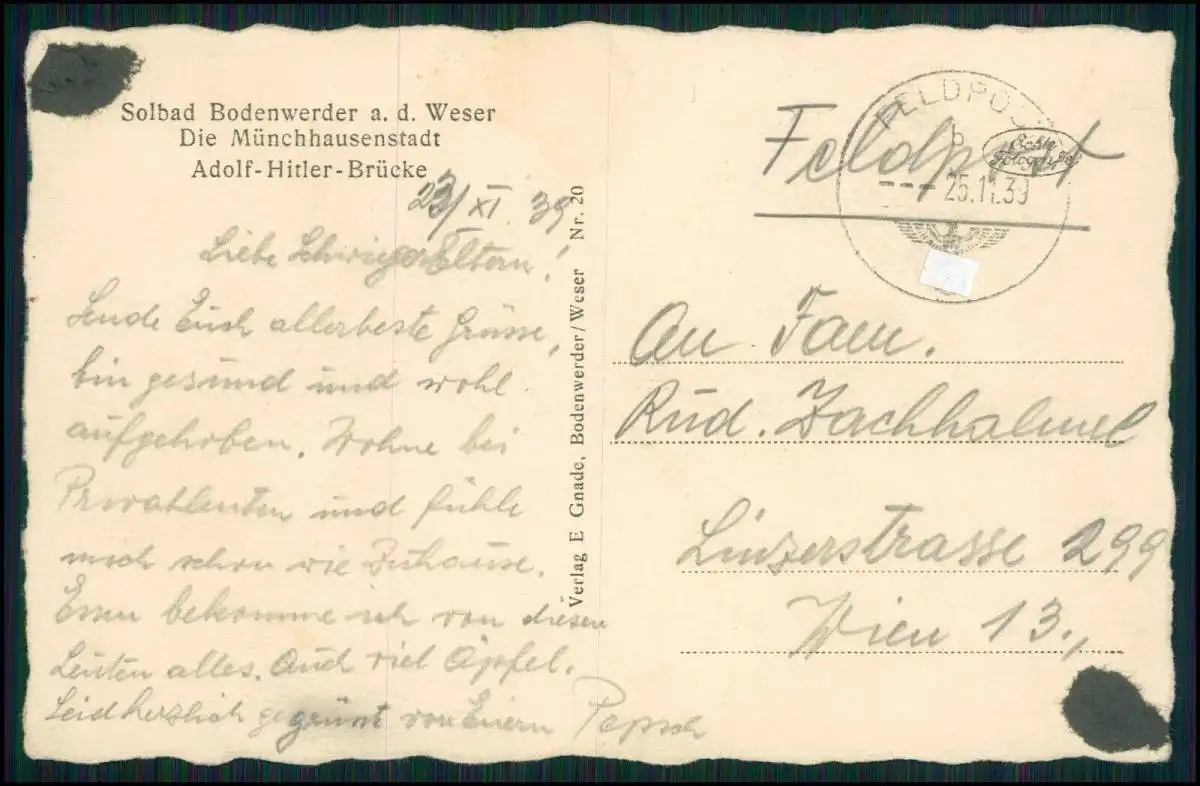 Solbad Bodenwerder a. d. Weser
Die Münchhausenstadt
Adolf-Hitler-Brücke
23/XI 39
Liebe Schwiegereltern!
Sende Euch allerbeste Grüsse,
bin gesund und wohl
aufgehoben. Wohne bei
Privatleuten und fühle
mich schon wie Zuhause.
Essen bekomme ich von diesen
Leuten alles. Auch viel Äpfel.
Seid herzlich gegrüsst von Euern Pepsch
Verlag E Gnade, Bodenwerder/Weser Nr. 20
Feldpost
FELDPOST
b
25.11.39
Echte
An Fam.
Rud. Zachhalmel
Linzerstrasse 299
Wien 13.,